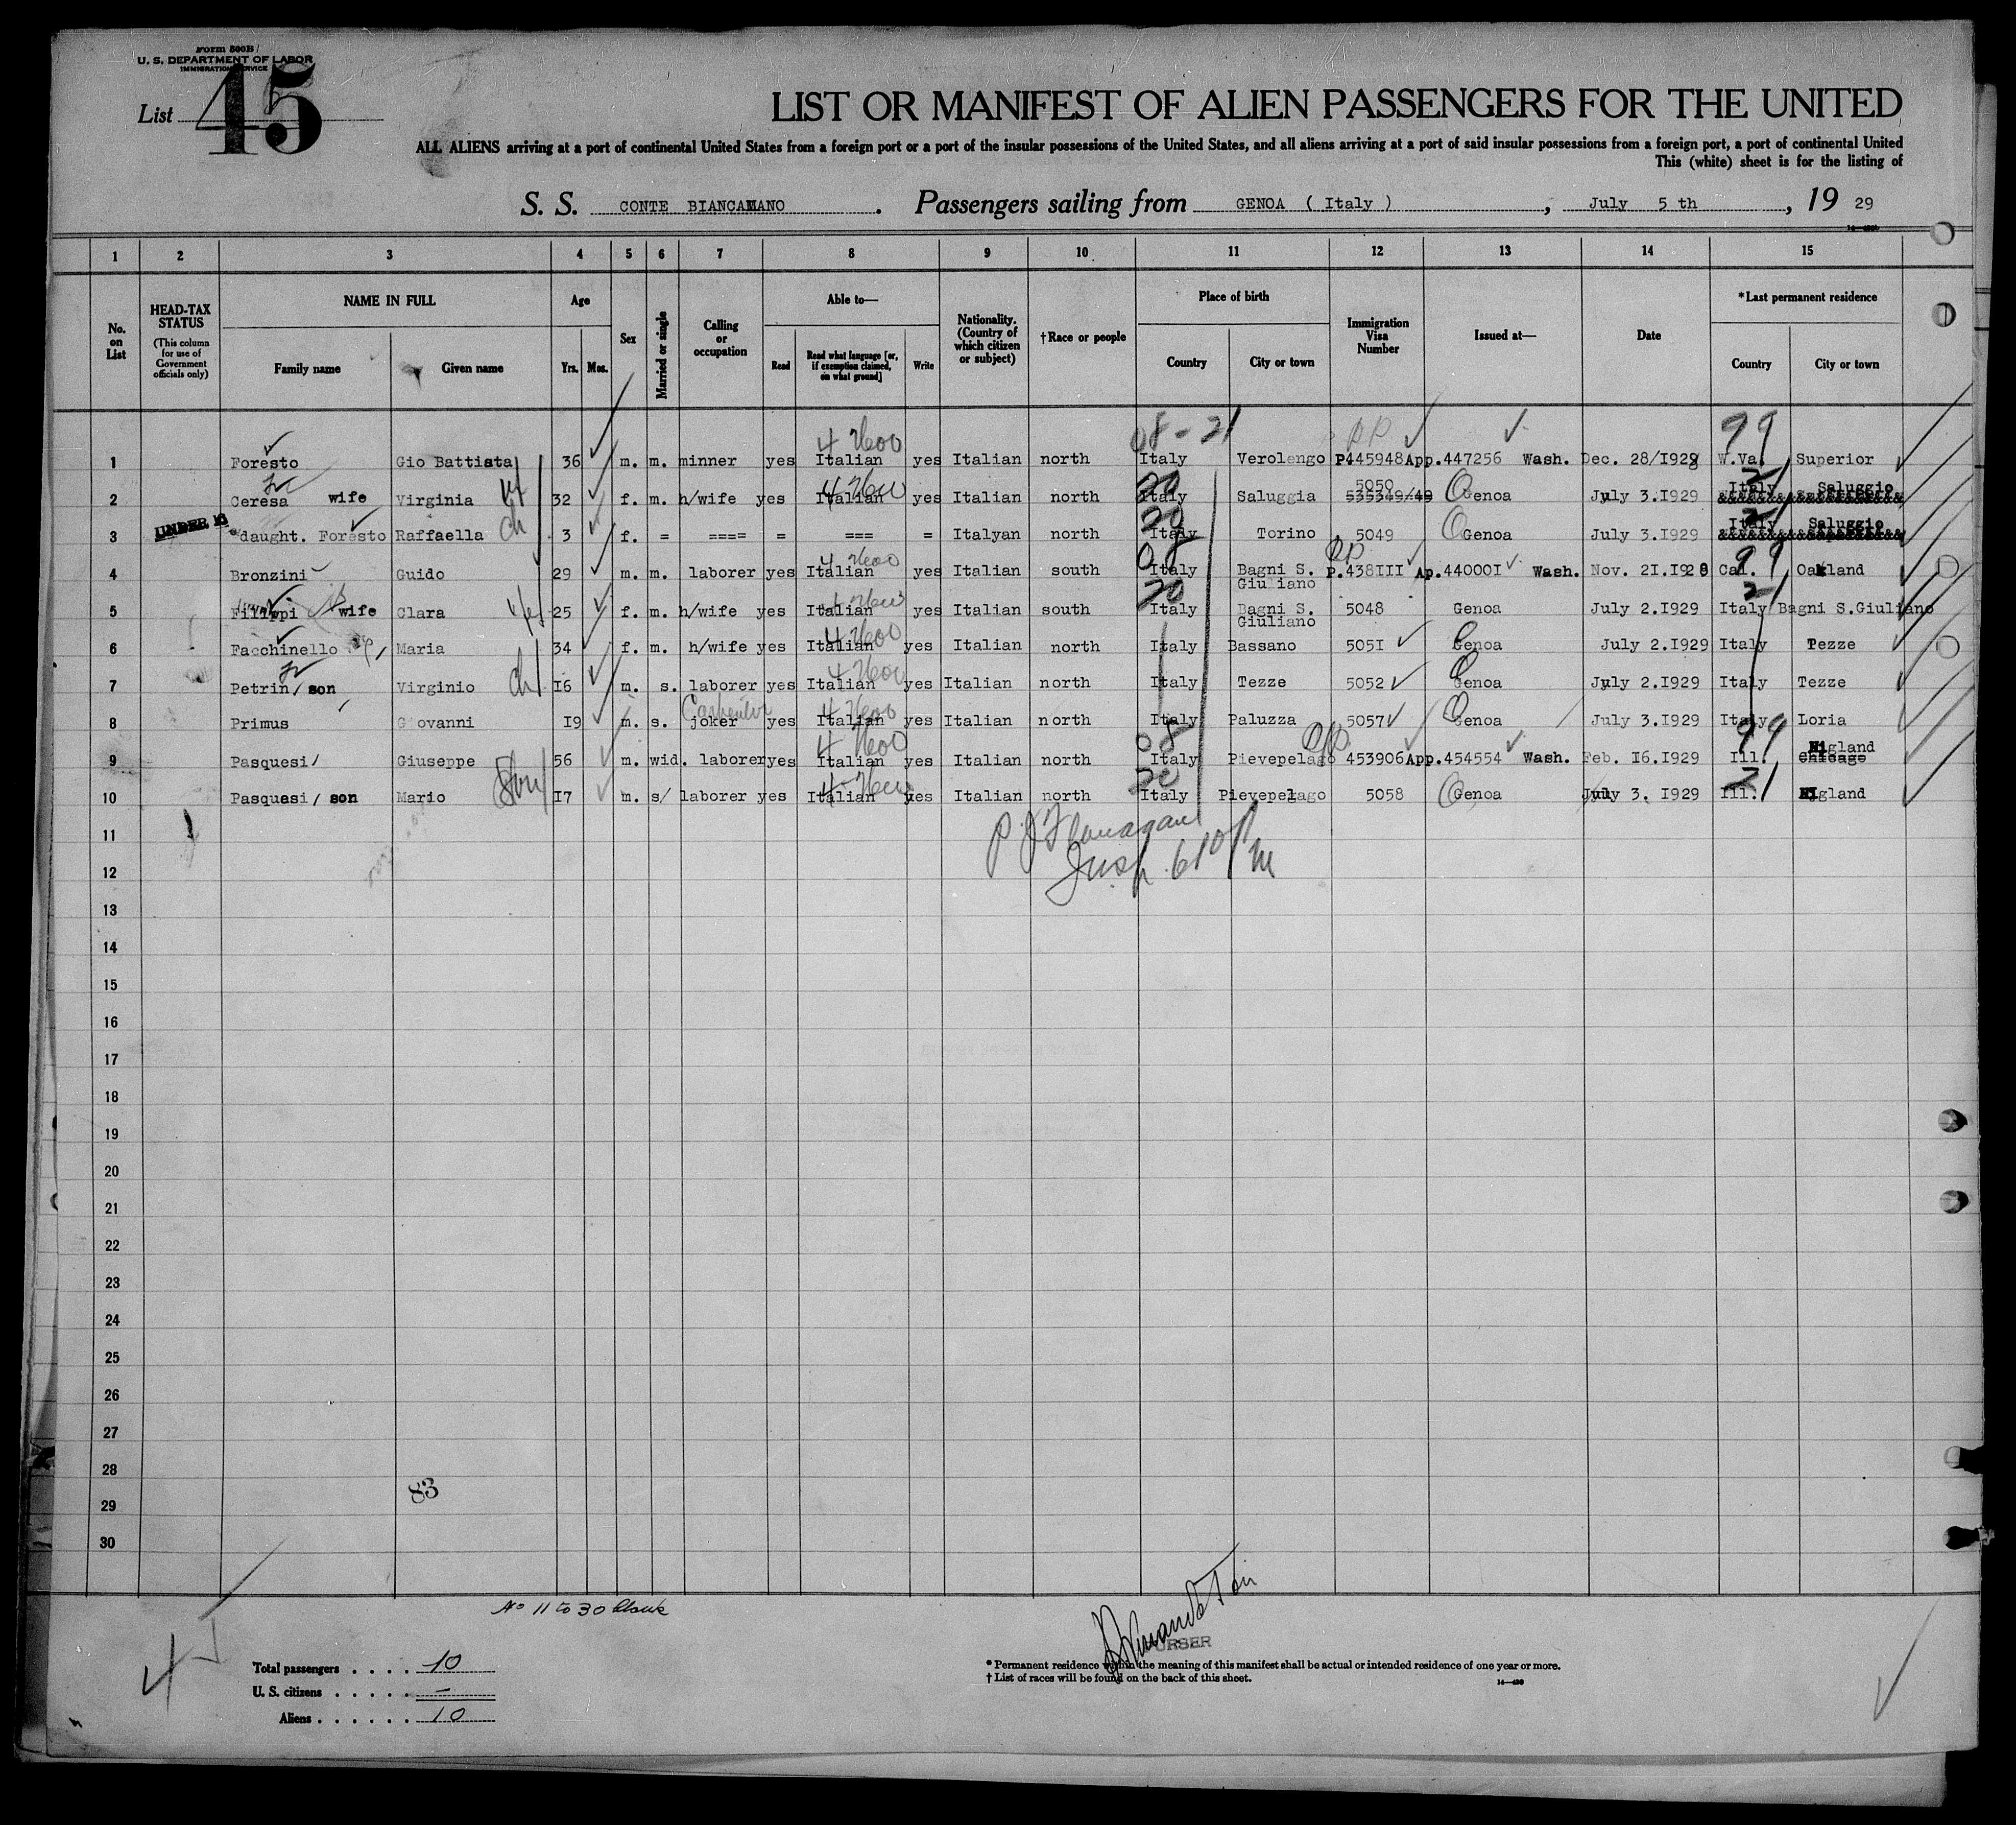 Form 500B
U. S. DEPARTMENT OF LABOR
IMMIGRATION SERVICE
List 45
LIST OR MANIFEST OF ALIEN PASSENGERS FOR THE UNITED
ALL ALIENS arriving at a port of continental United States from a foreign port or a port of the insular possessions of the United States, and all aliens arriving at a port of said insular possessions from a foreign port, a port of continental United
This (white) sheet is for the listing of
S. S. CONTE BIANCAMANO. Passengers sailing from GENOA ( Italy ), July 5 th, 19 29
1 2 3 4 5 6 7 8 9 10 11 12 13 14 15
No. on List
HEAD-TAX STATUS
(This column for use of Government officials only)
NAME IN FULL
Family name
Given name
Age
Yrs. Mos.
Sex
Married or single
Calling or occupation
Able to—
Read
Read what language [or, if exemption claimed, on what ground]
Write
Nationality. (Country of which citizen or subject)
†Race or people
Place of birth
Country
City or town
Immigration Visa Number
Issued at—
Date
*Last permanent residence
Country
City or town
4 2600 08-21 PP 99
1 Foresto Gio Battista 36 m. m. minner yes Italian yes Italian north Italy Verolengo P445948 App.447256 Wash. Dec. 28/1928 W.Va. Superior
2 Ceresa wife Virginia 32 f. m. h/wife yes Italian yes Italian north Italy Saluggia 5050 535349/49 Genoa July 3.1929 Italy Saluggio
UNDER 16
3 "daught. Foresto Raffaella ch 3 f. = ==== = === = Italyan north Italy Torino 5049 Genoa July 3.1929 Italy Saluggio
4 Bronzini Guido 29 m. m. laborer yes Italian yes Italian south Italy Bagni S. Giuliano P.438III Ap.44000I Wash. Nov. 2I.I928 Cal. Oakland
5 Filippi wife Clara 25 f. m. h/wife yes Italian yes Italian south Italy Bagni S. Giuliano 5048 Genoa July 2.I929 Italy Bagni S.Giuliano
6 Facchinello Maria 34 f. m. h/wife yes Italian yes Italian north Italy Bassano 505I Genoa July 2.I929 Italy Tezze
7 Petrin/ son Virginio ch I6 m. s. laborer yes Italian yes Italian north Italy Tezze 5052 Genoa July 2.I929 Italy Tezze
8 Primus Giovanni I9 m. s. joker yes Italian yes Italian north Italy Paluzza 5057 Genoa July 3.I929 Italy Loria
9 Pasquesi/ Giuseppe 56 m. wid. laborer yes Italian yes Italian north Italy Pievepelago 453906 App.454554 Wash. Feb. I6.I929 Ill. Higland Chicago
10 Pasquesi/ son Mario I7 m. s/ laborer yes Italian yes Italian north Italy Pievepelago 5058 Genoa July 3. I929 Ill. Higland
11
P. J. Flanagan
12
Insp.
13
14
15
16
17
18
19
20
21
22
23
24
25
26
27
28
83
29
30
No 11 to 30 blank
PURSER
Total passengers . . . . 10
U. S. citizens . . . . . —
Aliens . . . . . . 10
* Permanent residence within the meaning of this manifest shall be actual or intended residence of one year or more.
† List of races will be found on the back of this sheet.